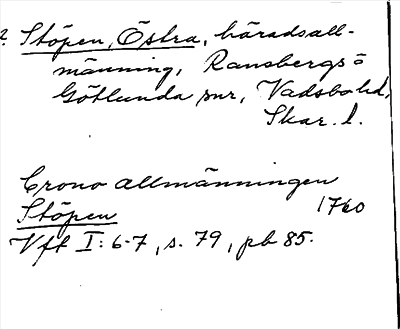 Stöpen, Östra, häradsall-
männing, Ransbergs o
Götlunda snr, Vadsbo hd,
Skar. l.
Crono allmänningen
Stöpen 1760
Vft I: 6-7, s. 79, pb 85.